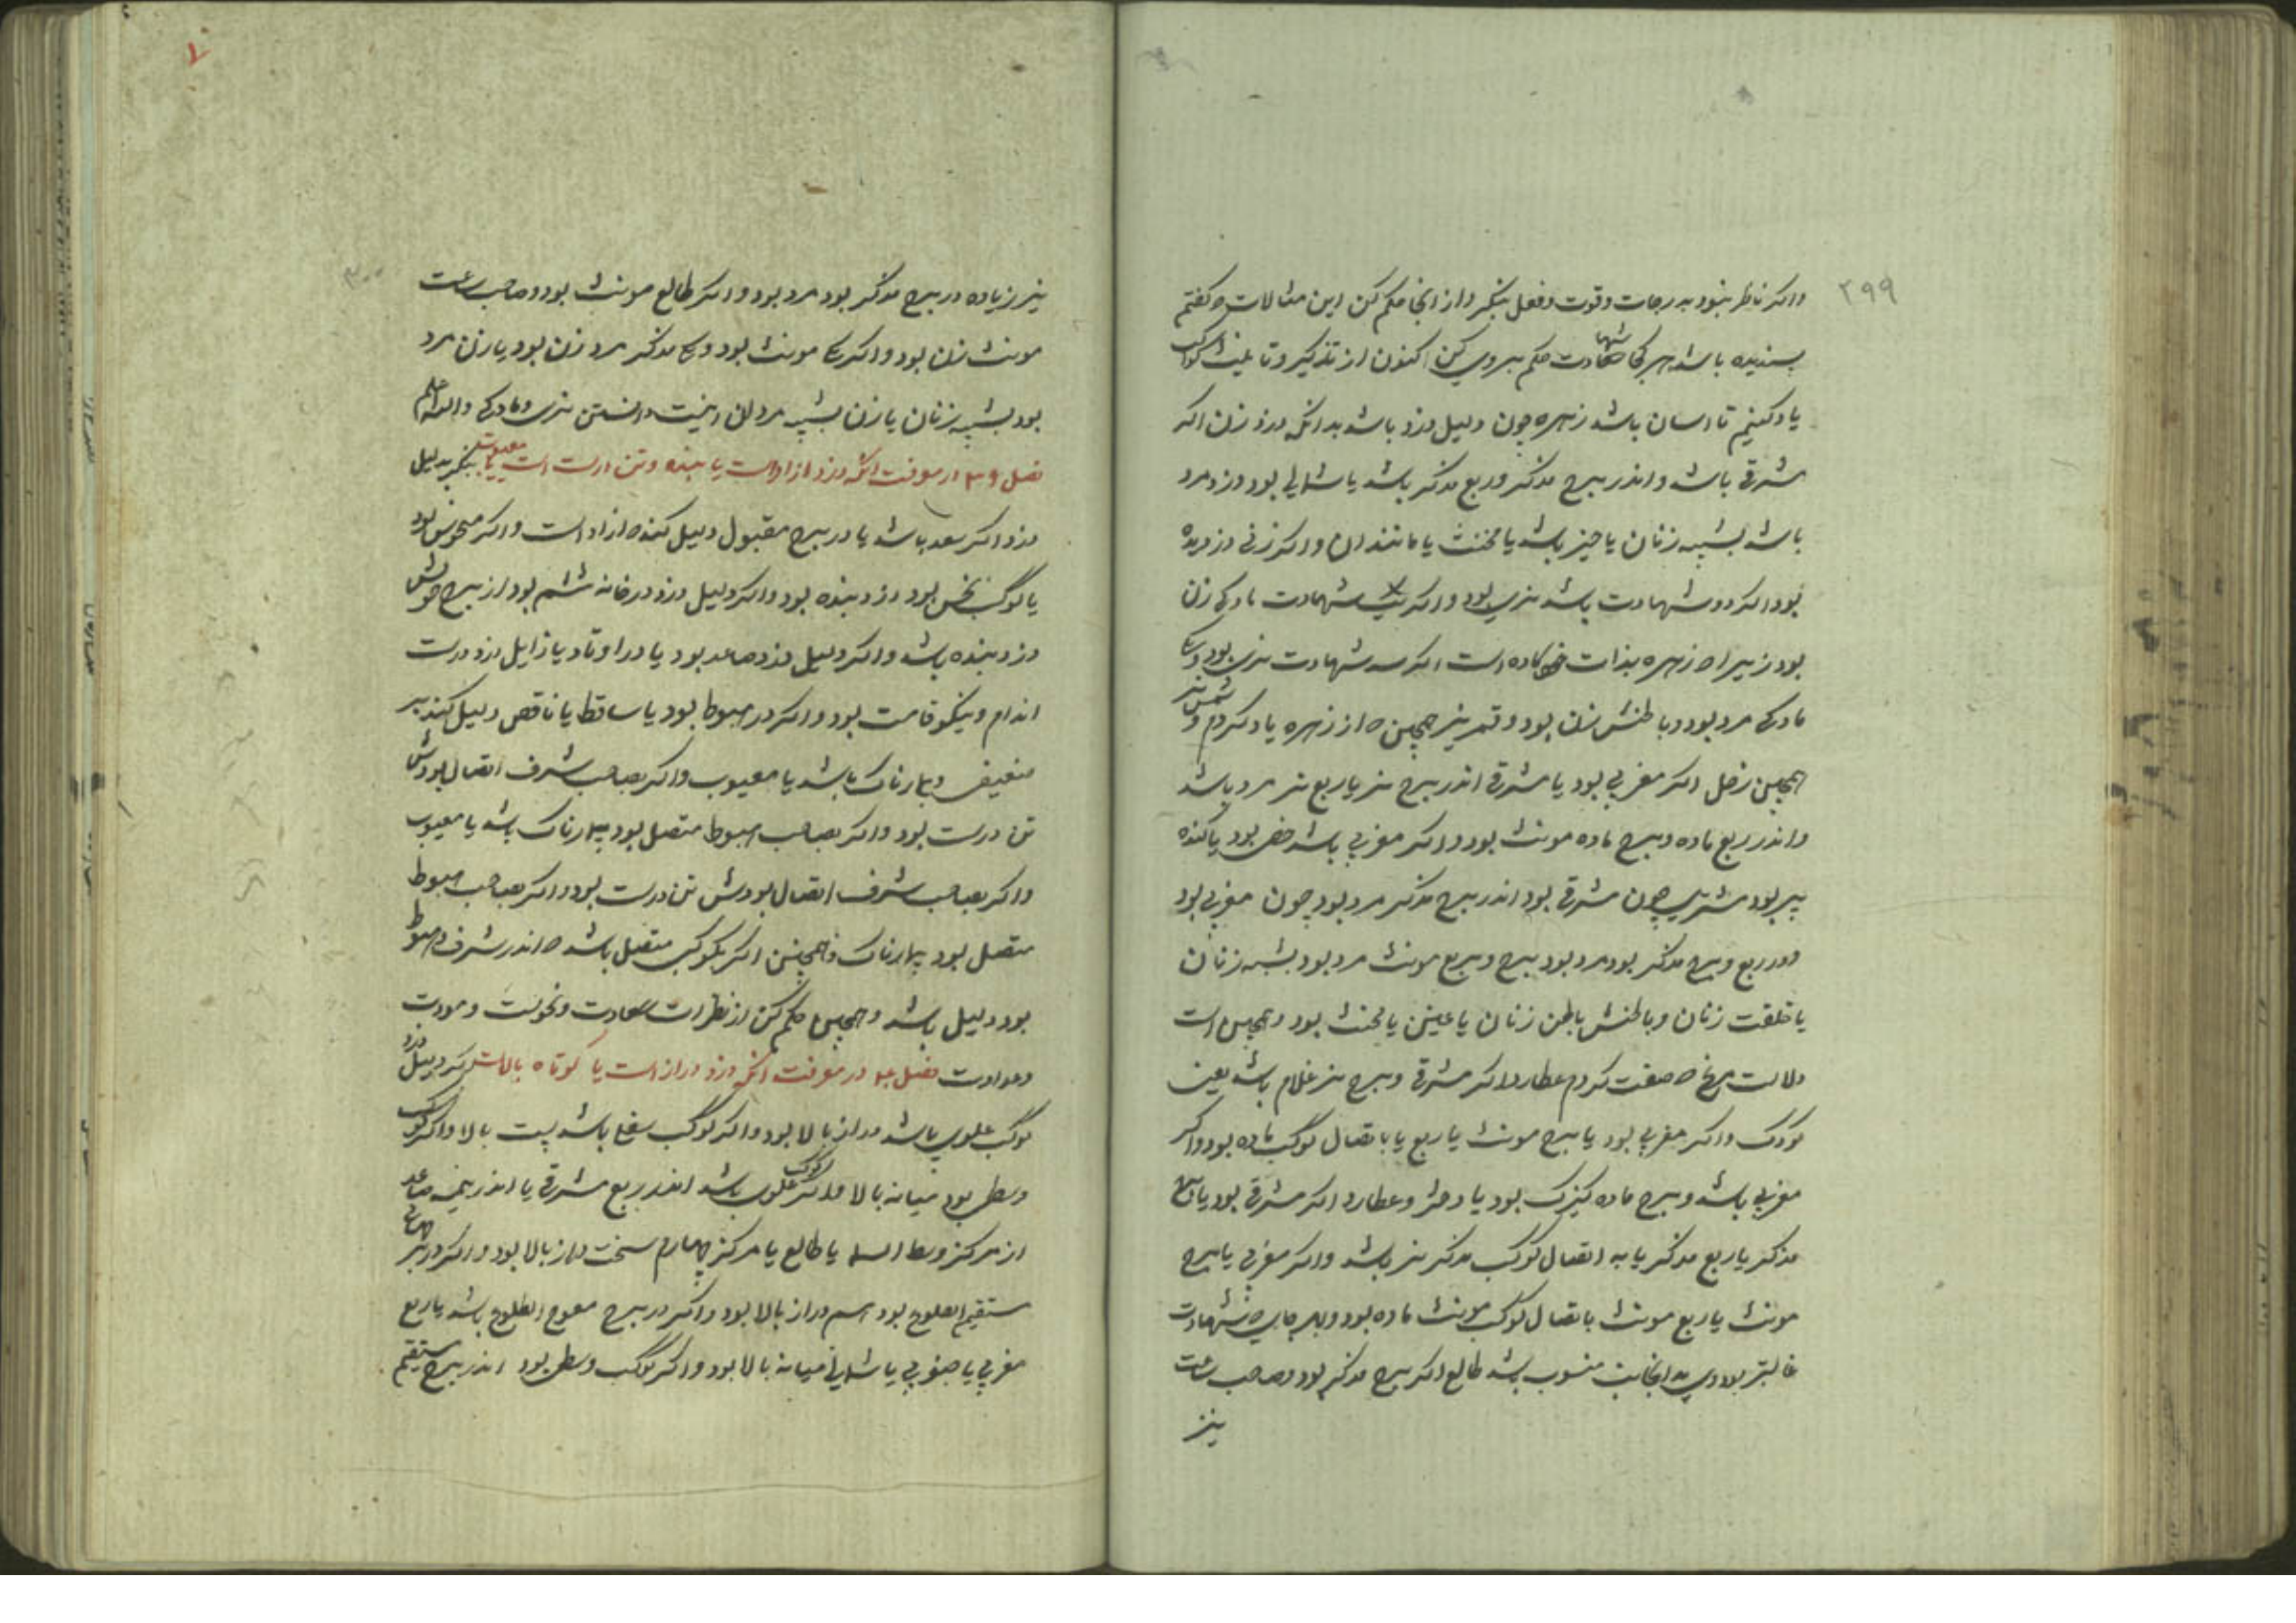 ۲۹۹
واکر ناظر نبود بدرجات وقوت وفعل بنکر واز انجا حکم کن این مثالات که کفتم
بسندیده باشد هر کجا شهادت حکم بروی کن اکنون از تذکیر وتانیث کواکب
یاد کنیم تا اسان باشد زهره چون دلیل دزد باشد بدانکه دزد زن اکر
مشرقی باشد واندر برج مذکر وربع مذکر باشد یا شمالی بود دزد مرد
باشد بشبه زنان یا حیز باشد یا مخنث یا مانند ان واکر زنی دزدیده
بود اکر دو شهادت باشد نری بود واکر یک شهادت مادکی زن
بود زیرا که زهره بذات خود ماده است اکر سه شهادت نری بود ویک
مادکی مرد بود وباطنش زن بود وقمر نیز همچنین که از زهره یاد کردم وشمس نیز
همچنین زحل اکر مغربی بود یا مشرقی اندر برج نر یا ربع نر مرد باشد
واندر ربع ماده وبرج ماده مونث بود واکر مغربی باشد خصی بود یا کنده
پیر بود مشتری چون مشرقی بود اندر برج مذکر مرد بود چون مغربی بود
ودر ربع وبرج مذکر بود مرد بود برج وبربع مونث مرد بود بشبه زنان
یا خلقت زنان وباطنش باطن زنان یا عنین یا مخنث بود وهمچنین است
دلالت مریخ که صفت کردم عطارد اکر مشرقی وبرج نر غلام باشد یعنی
کودک واکر مغربی بود یا برج مونث یا ربع یا باتصال کوکب ماده بود واکر
مغربی باشد وبرج ماده کنیزک بود یا دختر وعطارد اکر مشرقی بود یا برج
مذکر یا ربع مذکر یا به اتصال کوکب مذکر نر باشد واکر مغربی یا برج
مونث یا ربع مونث باتصال کوکب مونث ماده بود وبهر جای که شهادت
غالبتر بود وی بدانجانب منسوب باشد طالع اکر برج مذکر بود وصاحب ساعت
نیز
۳۰۰
نیز زیاده در برج مذکر بود مرد بود واکر طالع مونث بود وصاحب ساعت
مونث زن بود واکر یکی مونث بود ویکی مذکر مرد زن بود یا زن مرد
بود بشبه زنان یا زن بشبه مردان اینست دانستن نری ومادکی والله اعلم
فصل ۳۹ در معرفت انکه دزد ازاد است یا بنده وتن درست است یا معیوب بنکر بدلیل
دزد اکر سعد باشد یا در برج مقبول دلیل کند که ازاد است واکر منحوس بود
یا کوکب نحس بود دزد بنده بود واکر دلیل دزد در خانه ششم بود از برج خویش
دزد بنده باشد واکر دلیل دزد صاعد بود یا در اوتاد یا زایل دزد درست
اندام ونیکو قامت بود واکر در هبوط بود یا ساقط یا ناقص دلیل کند بر
ضعیف وبیمارناک باشد یا معیوب واکر بصاحب شرف اتصال بودش
تن درست بود واکر بصاحب هبوط متصل بود بیمارناک باشد یا معیوب
واکر بصاحب شرف اتصال بودش تن درست بود واکر بصاحب هبوط
متصل بود بیمارناک وهمچنین اکر بکوکبی متصل باشد که اندر شرف وهبوط
بود دلیل باشد وهمچنین حکم کن از نظرات سعادت ونحوست ومودت
وعداوت فصل ۴۰ در معرفت انکه دزد دراز است یا کوتاه بالاست اکر دلیل دزد
کوکب علوی باشد دراز بالا بود واکر کوکب سفلی باشد پست بالا واکر کوکب
وسطی بود میانه بالا واکر کوکب علوی باشد اندر ربع مشرقی یا اندر نیمه صاعد
از مرکز وسط السما یا طالع یا مرکز چهارم سخت دراز بالا بود واکر در برجهای
مستقیم الطلوع بود هم دراز بالا بود واکر در برج معوج الطلوع باشد یا ربع
مغربی یا جنوبی یا شمالی میانه بالا بود واکر کوکب وسطی بود اندر برج مستقیم